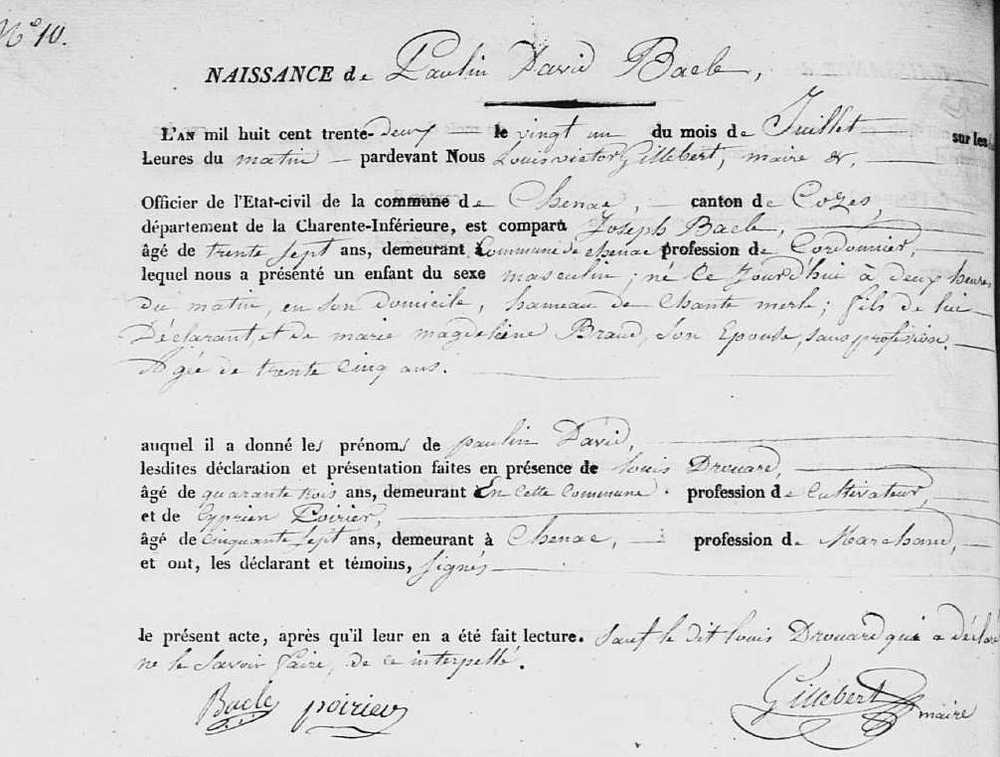 N° 10.
NAISSANCE de Paulin David Bacle,
L'AN mil huit cent trente-deux le vingt un du mois de Juillet sur les
heures du matin pardevant Nous Louis victor Gillebert, maire &.
Officier de l'Etat-civil de la commune de Chenac, canton de Cozes,
département de la Charente-Inférieure, est comparu Joseph Bacle,
âgé de trente sept ans, demeurant à Commune de chenac profession de Cordonnier,
lequel nous a présénté un enfant du sexe masculin; né Ce Jourd'hui à deux heures
du matin, en son domicile, hameau de Chante merle; fils de lui
Déclarant, et de marie magdeleine Braud, son Epouse, sans profession.
Agée de trente Cinq ans.
auquel il a donné les prénoms de paulin David,
lesdites déclaration et présentation faites en présence de Louis Drouard,
âgé de quarante trois ans, demeurant En Cette Commune. profession de Cultivateur,
et de Cyprien Poirier,
âgé de Cinquante Sept ans, demeurant à Chenac, profession de Marchand,
et ont, les déclarant et témoins, signés
le présent acte, après qu'il leur en a été fait lecture. Sauf le dit Louis Drouard qui a déclaré
ne le Savoir faire, de ce interpellé.
Bacle poirier Gillebert maire